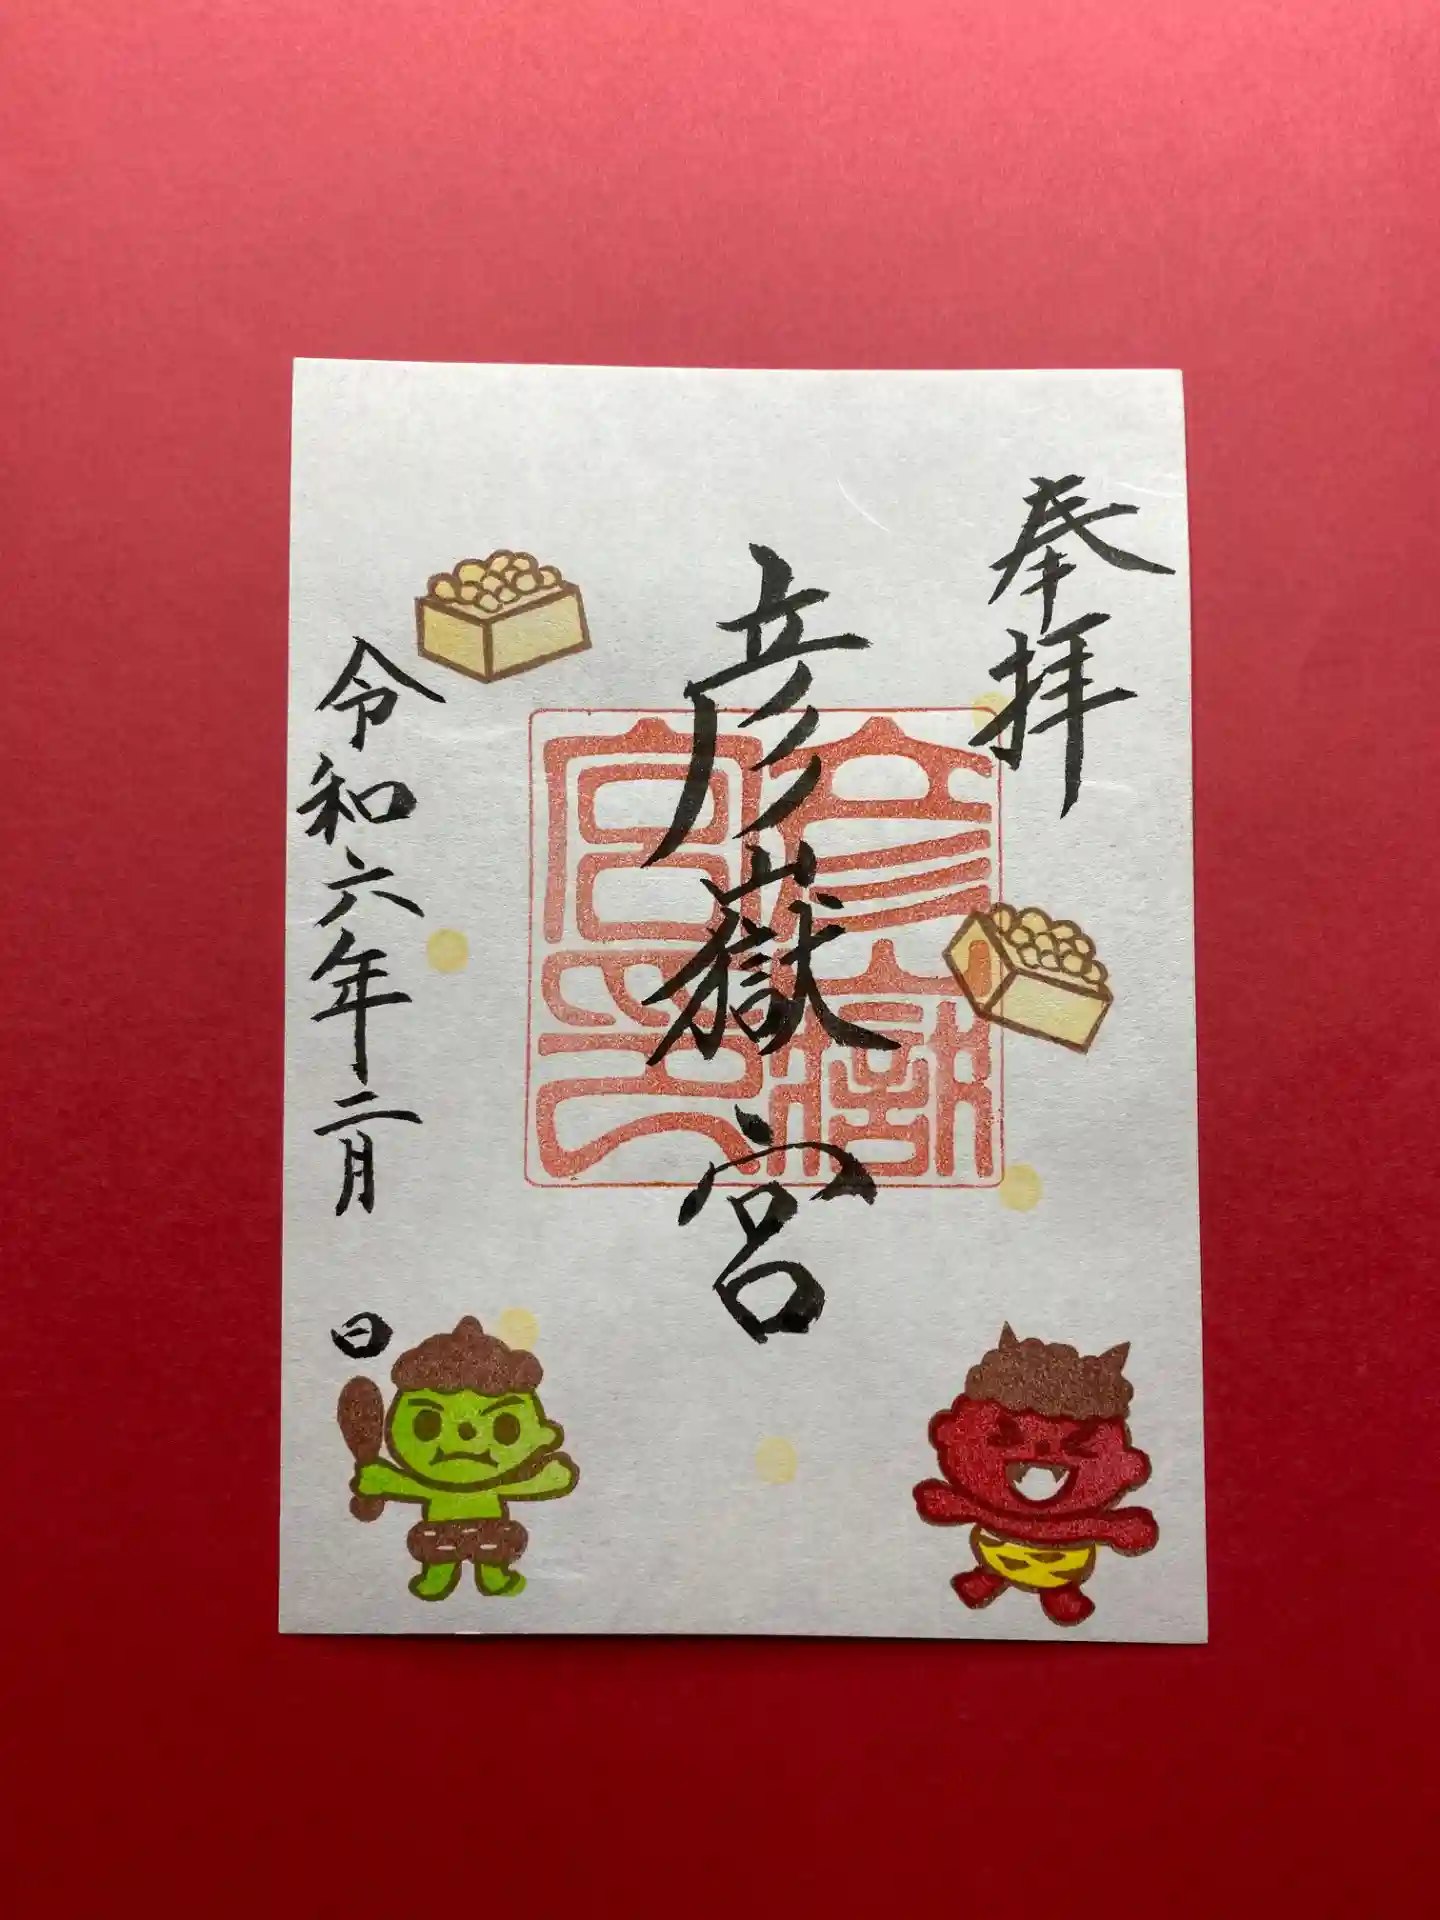 奉拝
彦嶽宮
彦嶽宮印
令和六年二月 日